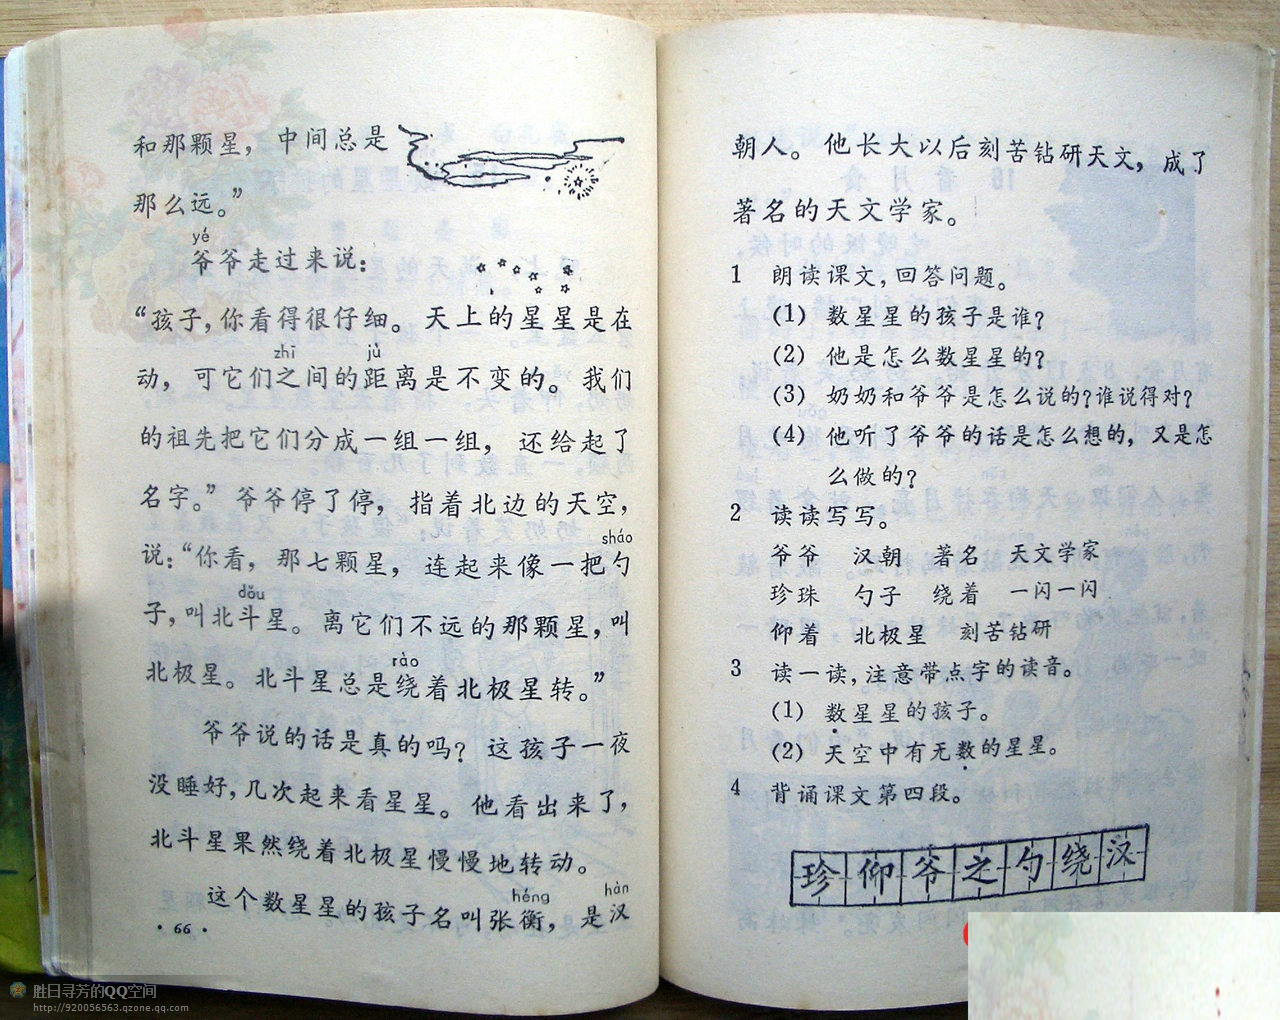 和那颗星，中间总是
那么远。”
yé
爷爷走过来说：
“孩子，你看得很仔细。天上的星星是在
zhī jù
动，可它们之间的距离是不变的。我们
的祖先把它们分成一组一组，还给起了
名字。”爷爷停了停，指着北边的天空，
sháo
说：“你看，那七颗星，连起来像一把勺
dǒu
子，叫北斗星。离它们不远的那颗星，叫
rào
北极星。北斗星总是绕着北极星转。”
爷爷说的话是真的吗？这孩子一夜
没睡好，几次起来看星星。他看出来了，
北斗星果然绕着北极星慢慢地转动。
héng hàn
这个数星星的孩子名叫张衡，是汉
·66·
朝人。他长大以后刻苦钻研天文，成了
著名的天文学家。
1 朗读课文，回答问题。
(1) 数星星的孩子是谁？
(2) 他是怎么数星星的？
(3) 奶奶和爷爷是怎么说的？谁说得对？
(4) 他听了爷爷的话是怎么想的，又是怎
么做的？
2 读读写写。
爷爷 汉朝 著名 天文学家
珍珠 勺子 绕着 一闪一闪
仰着 北极星 刻苦钻研
3 读一读，注意带点字的读音。
(1) 数星星的孩子。
(2) 天空中有无数的星星。
4 背诵课文第四段。
珍仰爷之勺绕汉
胜日寻芳的QQ空间
http://920056563.qzone.qq.com